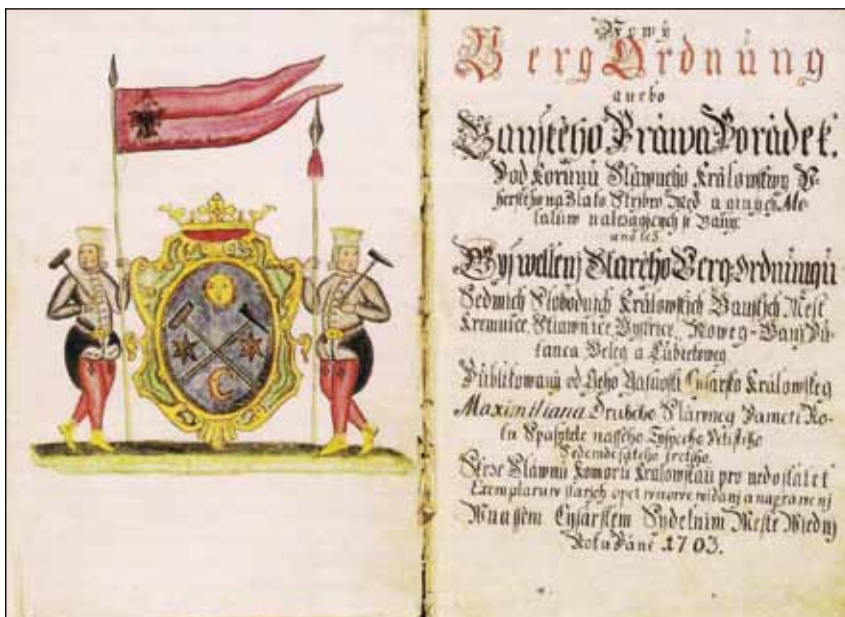 Nowÿ
Berg Ordnung
anebo
Banského Práwa Porádek.
Pod Korunu Sláwneho Králowstwy V-
herského na Zlato Strjbro Med a ginych Me-
taluw nalezagjcych se Banÿ.
ano tež
Starého Berg-Ordnungu
Sedmich Slobodnich Králowskych Banskych Mest
Kremnice, Stiawnice, Bystrice, Noweg-Banj Pu-
kanca Beleg a Lubietoweg
Publikowaný od Geho Jasnosti Cysarsko Králowskeg
Maximiliana Druheho Slawneg Pameti Ro-
ku Spasytele nasseho Tysyceho Petisteho
Sedemdesateho tretiho.
Skrze Slawnu Komoru Kralowskau pro nedostatek
starjch opet wnowe widanj a
W nassem Cysarskem Sydelnim Meste Wiednj
Roku Páně 1703.